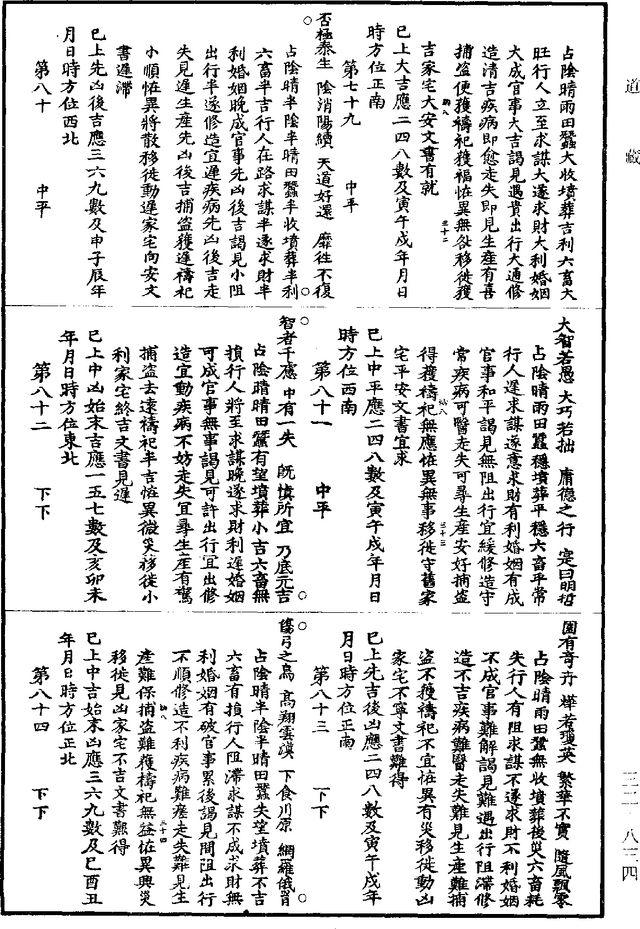 道藏
占陰晴雨田蠶大收墳葬吉利六畜大
旺行人立至求謀大遂求財大利婚姻
大成官事大吉謁見遇貴出行大通修
造清吉疾病即愈走失即見生產有喜
捕盜便獲禱祀獲福恠異無咎移徙獲
吉家宅大安文書有就
巳上大吉應二四八數及寅午戌年月日
時方位正南
第七十九　中平
否極泰生　陰消陽續　天道好還　靡往不復
占陰晴半陰半晴田蠶半收墳葬半利
六畜半吉行人在路求謀半遂求財半
利婚姻晚成官事先凶後吉謁見小阻
出行半遂修造宜遲疾病先凶後吉走
失見遲生產先凶後吉捕盜獲遲禱祀
小順恠異將散移徙動遲家宅向安文
書遲滯
巳上先凶後吉應三六九數及申子辰年
月日時方位西北
第八十　中平
大智若愚　大巧若拙　庸德之行　寔曰明哲
占陰晴雨田蠶穩墳葬平穩六畜平常
行人遲求謀遂意求財有利婚姻有成
官事和平謁見無阻出行宜緩修造守
常疾病可醫走失可尋生產安好捕盜
得獲禱祀無應恠異無事移徙守舊家
宅平安文書宜求
巳上中平應二四八數及寅午戌年月日
時方位西南
第八十一　中平
智者千慮　中有一失　旣慎所宜　乃底元吉
占陰晴晴田蠶有望墳葬小吉六畜無
損行人將至求謀晚遂求財利遲婚姻
可成官事無事謁見可許出行宜出修
造宜動疾病不妨走失宜尋生產有驚
捕盜去遠禱祀半吉恠異微災移徙小
利家宅終吉文書見遲
巳上中凶始末吉應一五七數及亥卯未
年月日時方位東北
第八十二　下下
園有奇卉　燁若瓊英　繁華不實　隨風飄零
占陰晴雨田蠶無收墳葬後災六畜耗
失行人有阻求謀不遂求財不利婚姻
不成官事難解謁見難遇出行阻滯修
造不吉疾病難醫走失難見生產難捕
盜不獲禱祀不宜恠異有災移徙動凶
家宅不寧文書難得
巳上先吉後凶應二四八數及寅午戌年
月日時方位正南
第八十三　下下
傷弓之鳥　高翔雲漢　下食川原　網羅俄罥
占陰晴半陰半晴田蠶失望墳葬不吉
六畜有損行人阻滯求謀不成求財無
利婚姻有破官事累後謁見間阻出行
不順修造不利疾病難痊走失難見生
產難保捕盜難獲禱祀無益恠異興災
移徙見凶家宅不吉文書難得
巳上中吉始末凶應三六九數及巳酉丑
年月日時方位正北
第八十四　下下
三二·八三四